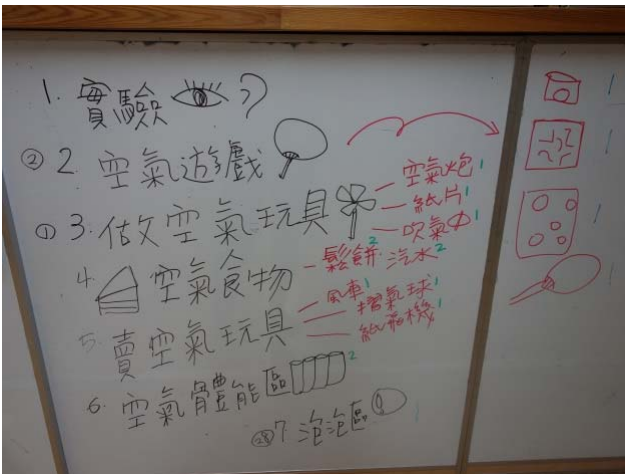 1. 實驗
② 2. 空氣遊戲
① 3. 做空氣玩具
空氣炮 1
紙片 1
吹氣 1
4. 空氣食物
鬆餅 2 汽水 2
5. 賣空氣玩具
風車 1
摺氣球 1
紙飛機 1
6. 空氣體能區 2
7 泡泡區
1
1
1
1